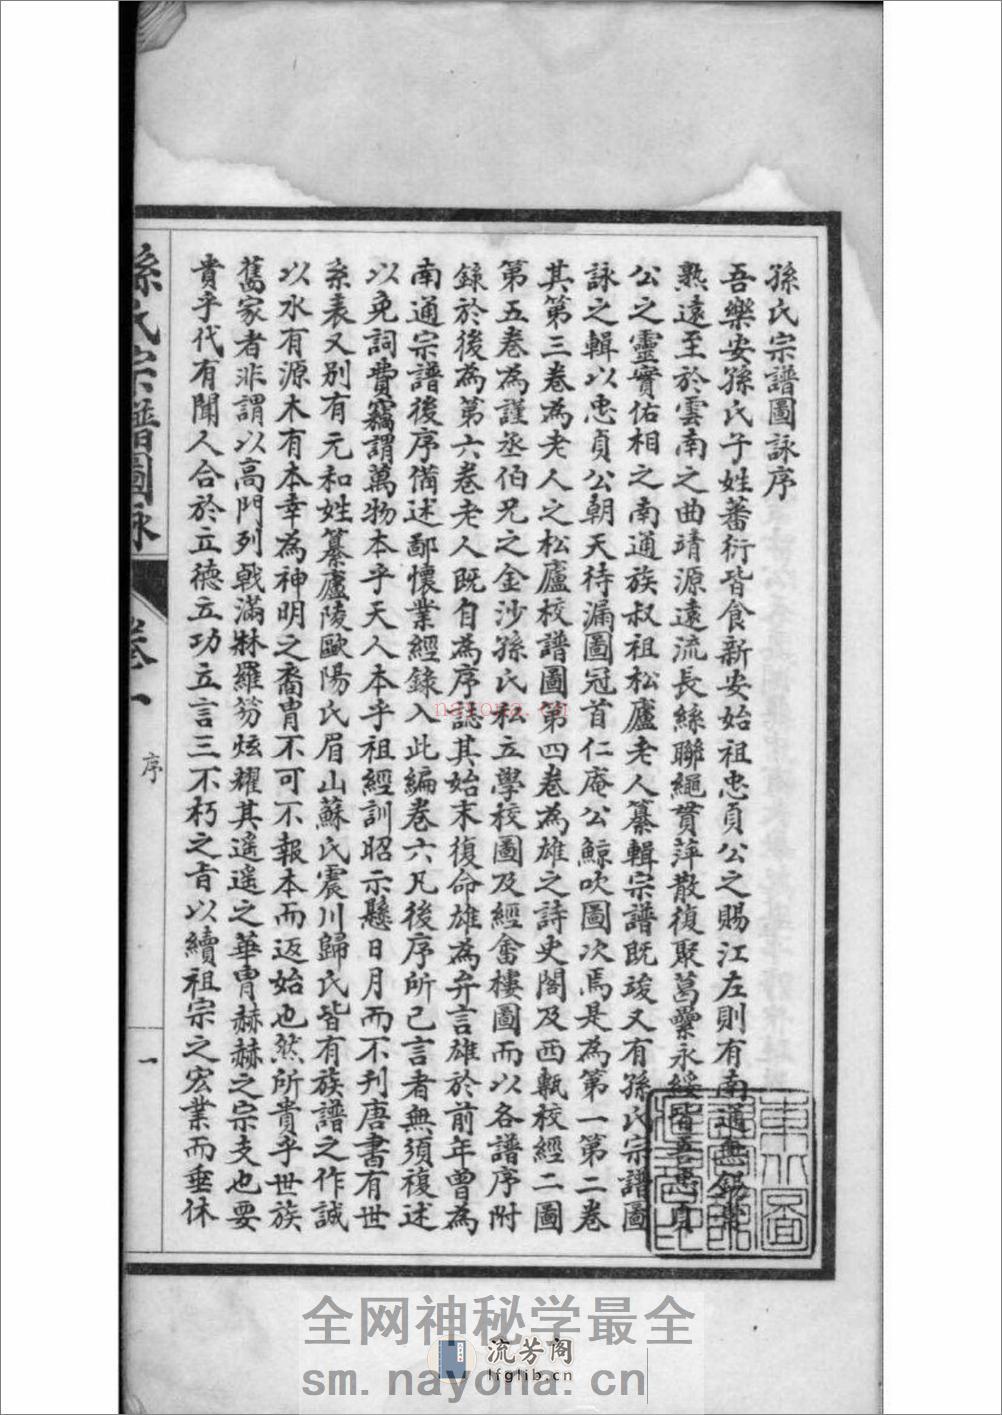 孫氏宗譜圖詠序
吾樂安孫氏子姓蕃衍皆食新安始祖忠貞公之賜江左則有南通無錫常
熟遠至於雲南之曲靖源遠流長絲聯繩貫萍散復聚葛虆永綏皆吾忠貞
公之靈實佑相之南通族叔祖松廬老人纂輯宗譜既竣又有孫氏宗譜圖
詠之輯以忠貞公朝天待漏圖冠首仁庵公鯨吹圖次焉是為第一第二卷
其第三卷為老人之松廬校譜圖第四卷為雄之詩史閣及西甎校經二圖
第五卷為謹丞伯兄之金沙孫氏私立學校圖及經畬樓圖而以各譜序附
錄於後為第六卷老人既自為序誌其始末復命雄為弁言雄於前年曾為
南通宗譜後序備述鄙懷業經錄入此編卷六凡後序所已言者無須複述
以免詞費竊謂萬物本乎天人本乎祖經訓昭示懸日月而不刊唐書有世
系表又別有元和姓纂廬陵歐陽氏眉山蘇氏震川歸氏皆有族譜之作誠
以水有源木有本幸為神明之裔胄不可不報本而返始也然所貴乎世族
舊家者非謂以高門列戟滿牀羅笏炫耀其遥遥之華胄赫赫之宗支也要
貴乎代有聞人合於立德立功立言三不朽之旨以續祖宗之宏業而垂休
孫氏宗譜圖詠
卷一
序
一
nayona.cn
全网神秘学最全
流芳阁
lfglib.cn
sm.nayona.cn